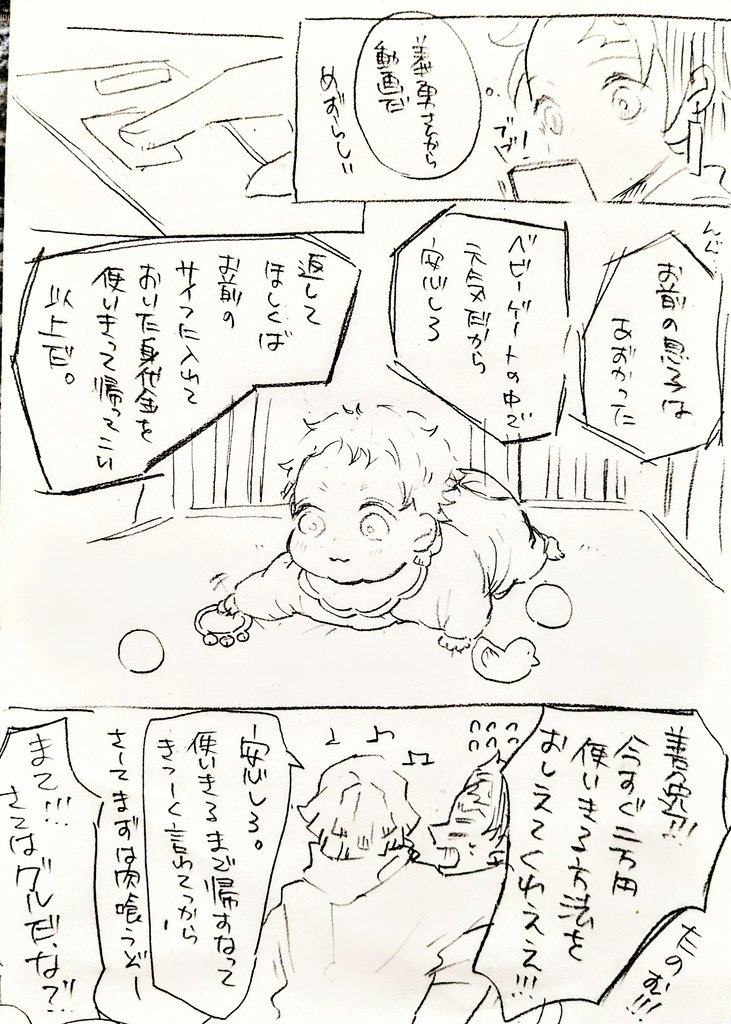 義勇さんから
動画だ
めずらしい
ブブ!
んぐ…
お前の息子は
あずかった
ベビーゲートの中で
元気だから
安心しろ
返して
ほしくば
お前の
サイフに入れて
おいた身代金を
使いきって帰ってこい
以上だ。
善免!!
今すぐ二万円
使いきる方法を
おしえてくれええ!!!
たのむ!!!
安心しろ。
使いきるまで帰すなって
きつーく言われてっから
さーてまずは肉喰うぞー
まて!!!
さてはグルだな?!